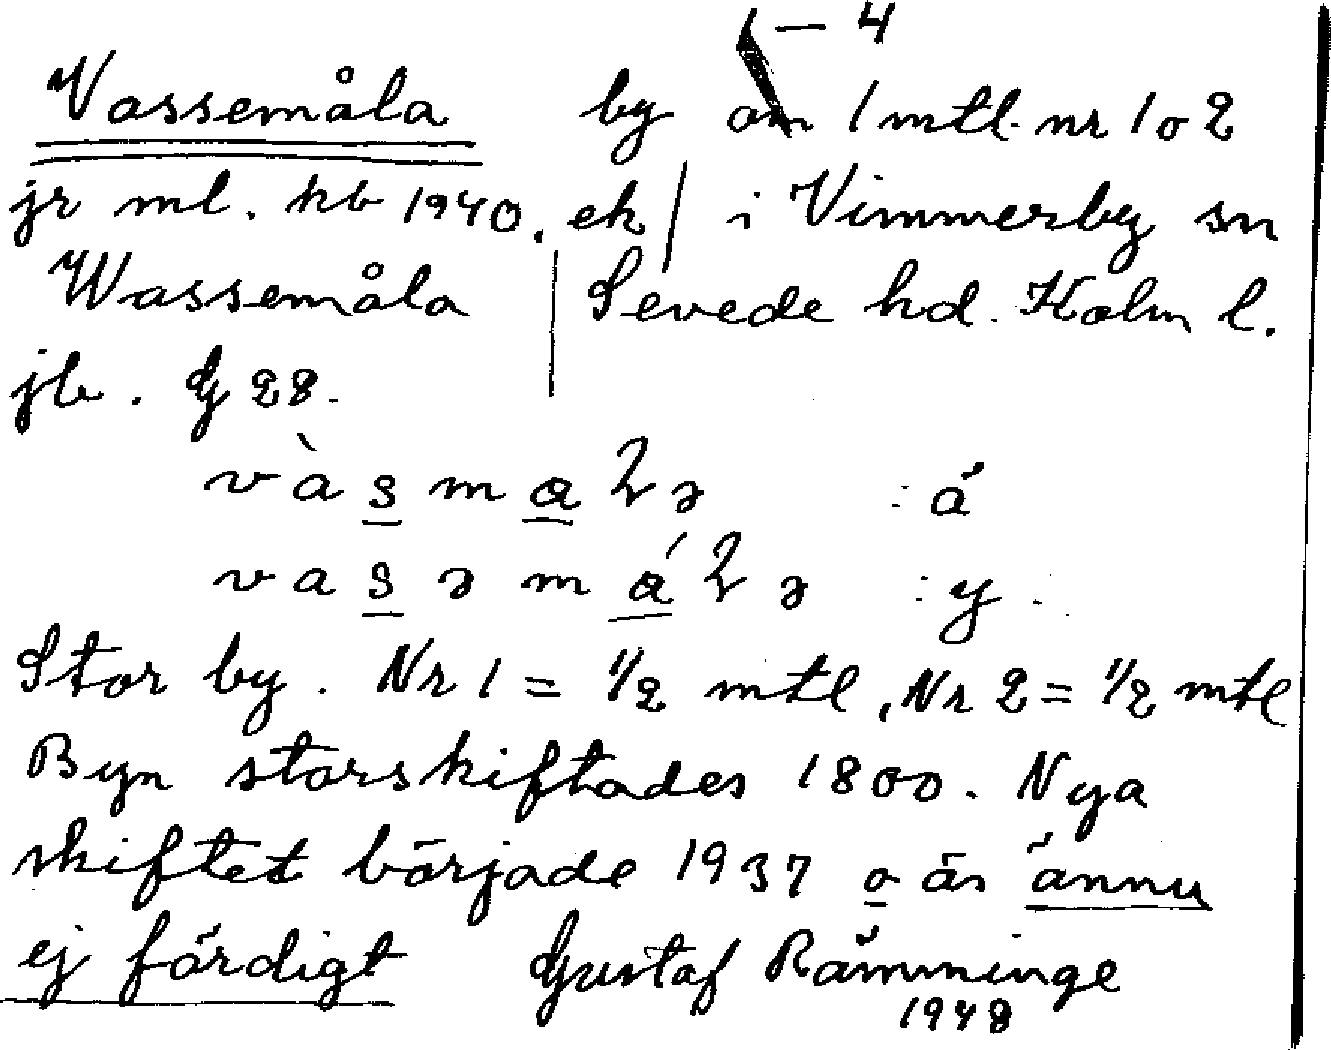 1 – 4
Vassemåla by om 1 mtl. nr 1 o 2
jr ml. hb 1940. ek / i Vimmerby sn
Wassemåla | Sevede hd. Kalm l.
jb. G 28.
vàsmaɀə : á
vasəmáɀə : y.
Stor by. Nr 1 = 1/2 mtl, Nr 2 = 1/2 mtl
Byn storskiftades 1800. Nya
skiftet började 1937 o är ännu
ej färdigt Gustaf Rämninge
1948